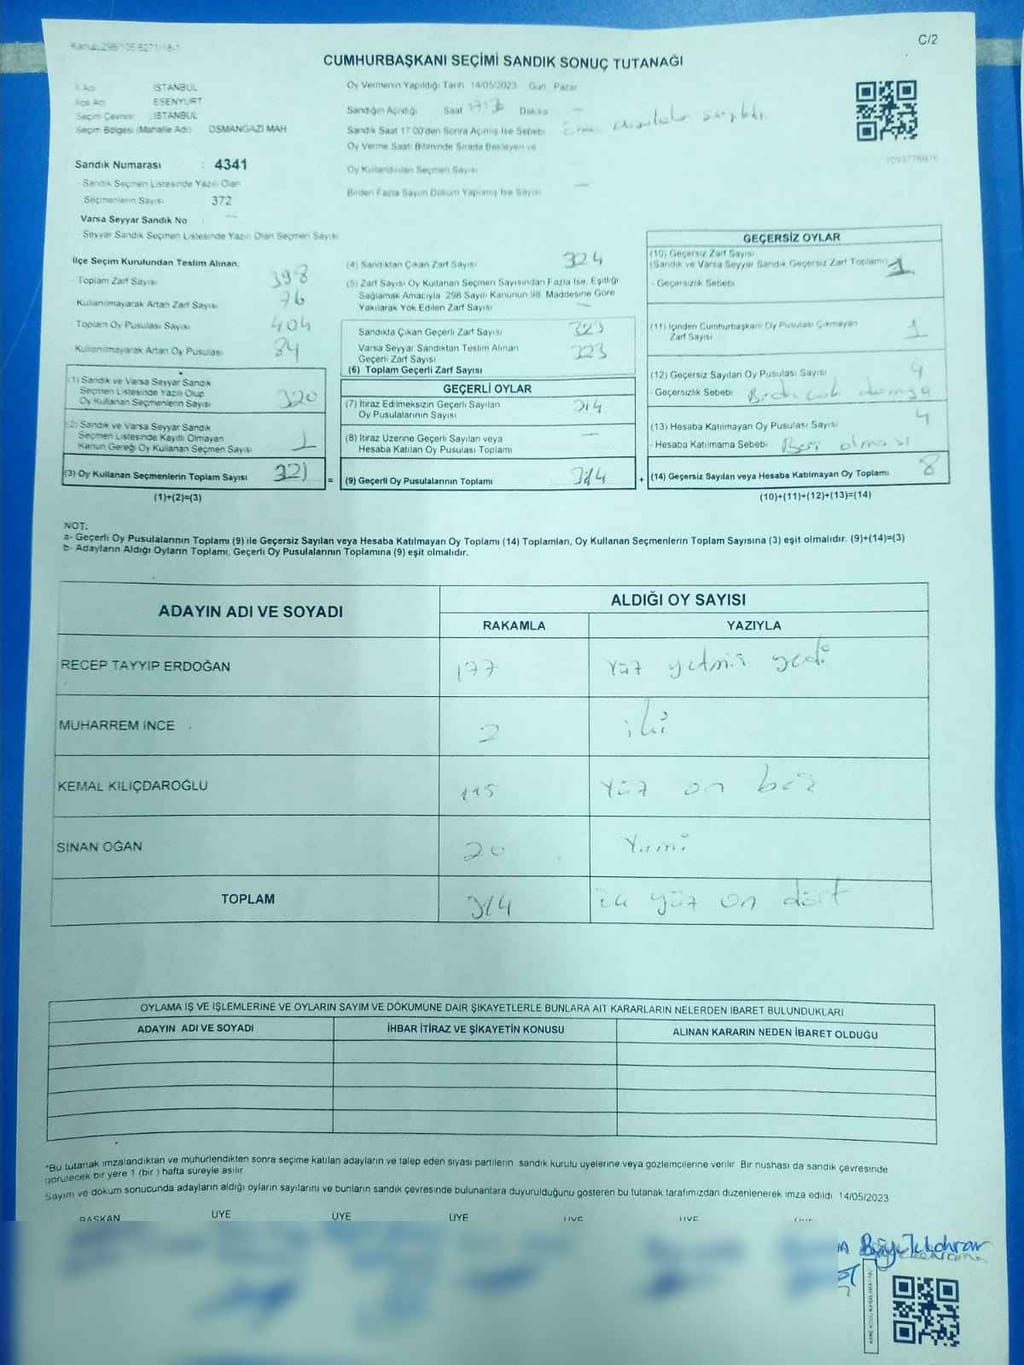 C/2
CUMHURBAŞKANI SEÇİMİ SANDIK SONUÇ TUTANAĞI
İl Adı : İSTANBUL
İlçe Adı : ESENYURT
Seçim Çevresi : İSTANBUL
Seçim Bölgesi (Mahalle Adı) : OSMANGAZİ MAH
Sandık Numarası : 4341
Sandık Seçmen Listesinde Yazılı Olan
Seçmenlerin Sayısı 372
Varsa Seyyar Sandık No : —
Seyyar Sandık Seçmen Listesinde Yazılı Olan Seçmen Sayısı
Oy Vermenin Yapıldığı Tarih 14/05/2023 Gün Pazar
Sandığın Açıldığı Saat Dakika —
Sandık Saat 17:00'den Sonra Açılmış İse Sebebi
Oy Verme Saati Bitiminde Sırada Bekleyen ve
Oy Kullandırılan Seçmen Sayısı
Birden Fazla Sayım Döküm Yapılmış İse Sayısı —
İlçe Seçim Kurulundan Teslim Alınan,
Toplam Zarf Sayısı 398
Kullanılmayarak Artan Zarf Sayısı 76
Toplam Oy Pusulası Sayısı 404
Kullanılmayarak Artan Oy Pusulası 84
(1) Sandık ve Varsa Seyyar Sandık
Seçmen Listesinde Yazılı Olup
Oy Kullanan Seçmenlerin Sayısı 320
(2) Sandık ve Varsa Seyyar Sandık
Seçmen Listesinde Kayıtlı Olmayan
Kanun Gereği Oy Kullanan Seçmen Sayısı 1
(3) Oy Kullanan Seçmenlerin Toplam Sayısı 321
(1)+(2)=(3)
(4) Sandıktan Çıkan Zarf Sayısı 324
(5) Zarf Sayısı Oy Kullanan Seçmen Sayısından Fazla İse, Eşitliği
Sağlamak Amacıyla 298 Sayılı Kanunun 98. Maddesine Göre
Yakılarak Yok Edilen Zarf Sayısı —
Sandıkta Çıkan Geçerli Zarf Sayısı 323
Varsa Seyyar Sandıktan Teslim Alınan
Geçerli Zarf Sayısı 323
(6) Toplam Geçerli Zarf Sayısı
GEÇERLİ OYLAR
(7) İtiraz Edilmeksizin Geçerli Sayılan
Oy Pusulalarının Sayısı 314
(8) İtiraz Üzerine Geçerli Sayılan veya
Hesaba Katılan Oy Pusulası Toplamı —
= (9) Geçerli Oy Pusulalarının Toplamı 314 +
GEÇERSİZ OYLAR
(10) Geçersiz Zarf Sayısı
(Sandık ve Varsa Seyyar Sandık Geçersiz Zarf Toplamı) 1
- Geçersizlik Sebebi
(11) İçinden Cumhurbaşkanı Oy Pusulası Çıkmayan
Zarf Sayısı 1
(12) Geçersiz Sayılan Oy Pusulası Sayısı 4
- Geçersizlik Sebebi
(13) Hesaba Katılmayan Oy Pusulası Sayısı 4
- Hesaba Katılmama Sebebi Boş olması
(14) Geçersiz Sayılan veya Hesaba Katılmayan Oy Toplamı 8
(10)+(11)+(12)+(13)=(14)
NOT:
a- Geçerli Oy Pusulalarının Toplamı (9) ile Geçersiz Sayılan veya Hesaba Katılmayan Oy Toplamı (14) Toplamları, Oy Kullanan Seçmenlerin Toplam Sayısına (3) eşit olmalıdır. (9)+(14)=(3)
b- Adayların Aldığı Oyların Toplamı, Geçerli Oy Pusulalarının Toplamına (9) eşit olmalıdır.
ADAYIN ADI VE SOYADI
ALDIĞI OY SAYISI
RAKAMLA YAZIYLA
RECEP TAYYIP ERDOĞAN 177 Yüz yetmiş yedi
MUHARREM İNCE 2 iki
KEMAL KILIÇDAROĞLU 115 Yüz on beş
SİNAN OĞAN 20 Yirmi
TOPLAM 314 üç yüz on dört
OYLAMA İŞ VE İŞLEMLERİNE VE OYLARIN SAYIM VE DÖKÜMÜNE DAİR ŞİKAYETLERLE BUNLARA AİT KARARLARIN NELERDEN İBARET BULUNDUKLARI
ADAYIN ADI VE SOYADI İHBAR İTİRAZ VE ŞİKAYETİN KONUSU ALINAN KARARIN NEDEN İBARET OLDUĞU
*Bu tutanak imzalandıktan ve mühürlendikten sonra seçime katılan adayların ve talep eden siyasi partilerin sandık kurulu üyelerine veya gözlemcilerine verilir. Bir nüshası da sandık çevresinde
görülecek bir yere 1 (bir) hafta süreyle asılır
Sayım ve döküm sonucunda adayların aldığı oyların sayılarını ve bunların sandık çevresinde bulunanlara duyurulduğunu gösteren bu tutanak tarafımızdan düzenlenerek imza edildi 14/05/2023
BAŞKAN ÜYE ÜYE ÜYE ÜYE ÜYE